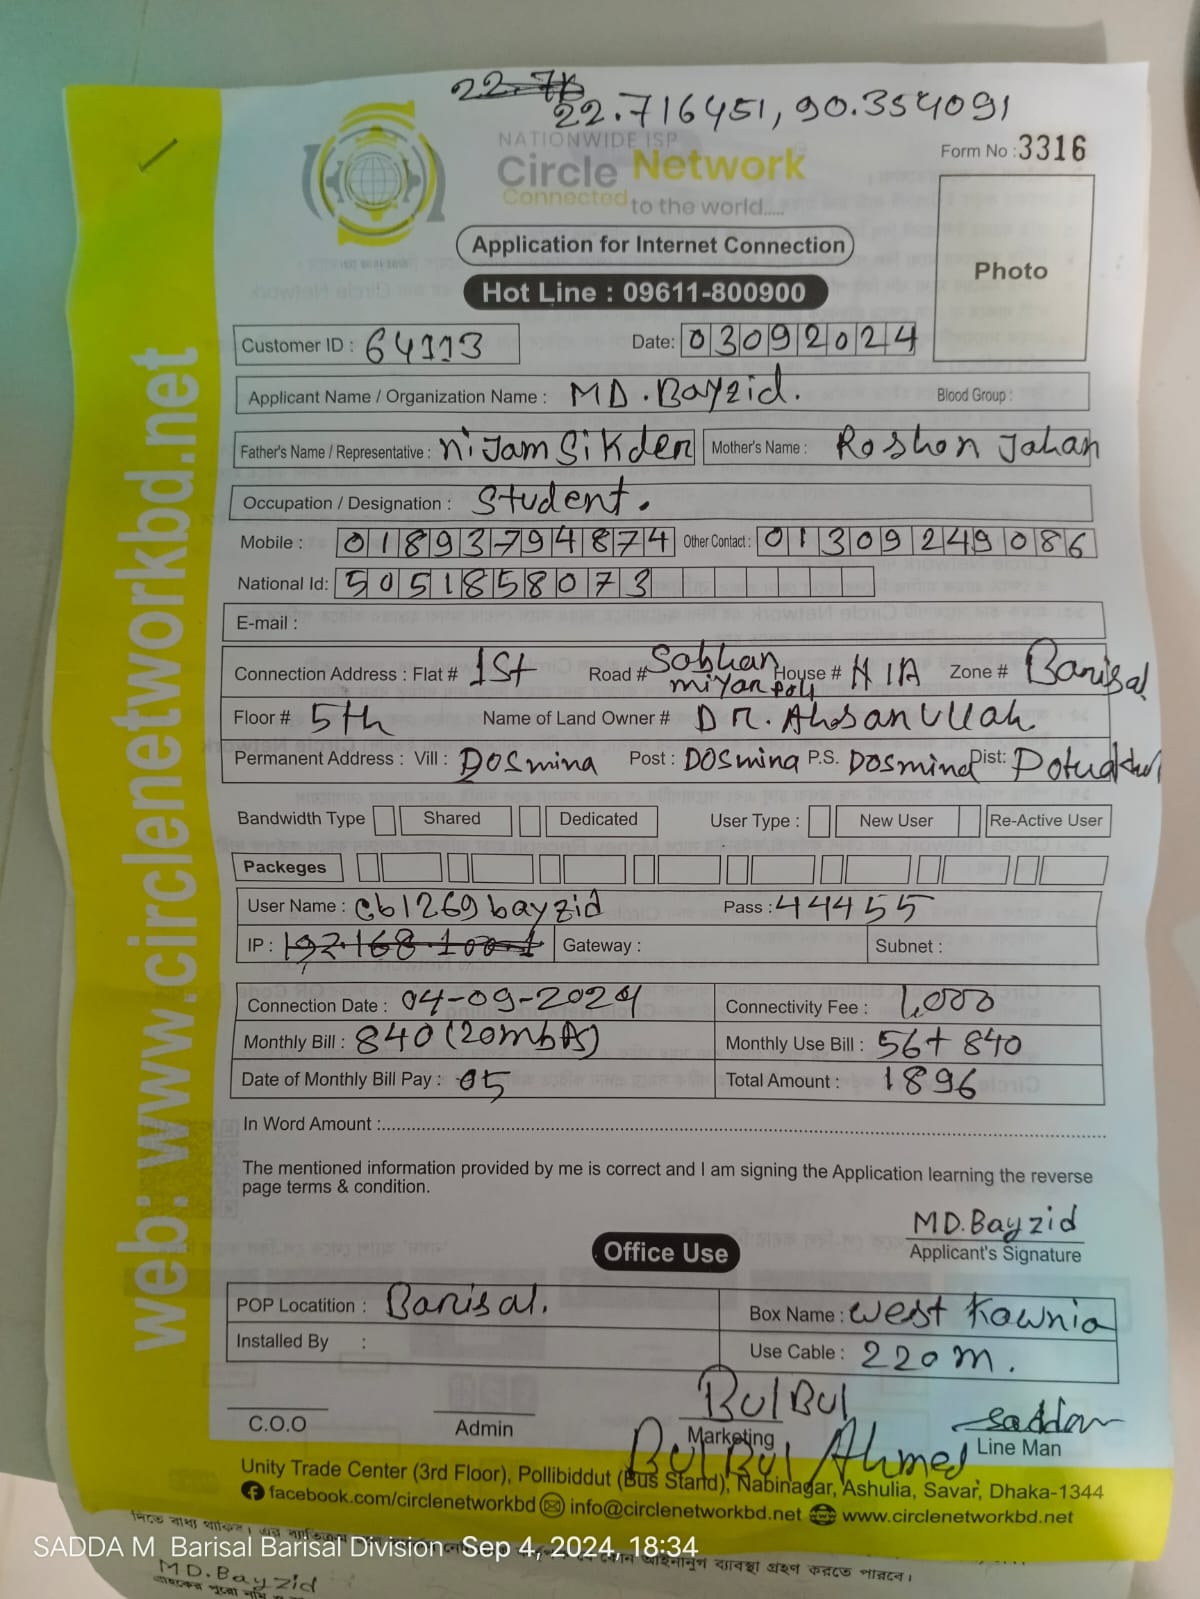 22.716451, 90.354091
NATIONWIDE ISP
Circle Network
Connected to the world.....
Form No : 3316
Photo
Application for Internet Connection
Hot Line : 09611-800900
Customer ID : 64113 Date: 03092024
Applicant Name / Organization Name : MD. Bayzid. Blood Group :
Father's Name / Representative : niJam Sikder Mother's Name : Roshon Jahan
Occupation / Designation : Student.
Mobile : 01893794874 Other Contact : 01309249086
National Id: 5051858073
E-mail :
Connection Address : Flat # 1St Road # Sobhan miyar poli House # H 1A Zone # Barisal
Floor # 5th Name of Land Owner # DR. Ahsan Ullah
Permanent Address : Vill : Dosmina Post : Dosmina P.S. Dosmina Dist:
Bandwidth Type Shared Dedicated User Type : New User Re-Active User
Packeges
User Name : cb1269bayzid Pass : 44455
IP : 192.168.100.1 Gateway : Subnet :
Connection Date : 04-09-2024 Connectivity Fee : 1,000
Monthly Bill : 840 (20mbps) Monthly Use Bill : 56+ 840
Date of Monthly Bill Pay : 05 Total Amount : 1896
In Word Amount :
The mentioned information provided by me is correct and I am signing the Application learning the reverse
page terms & condition.
MD.Bayzid
Applicant's Signature
Office Use
POP Locatition : Barisal. Box Name : West Kawnia
Installed By : Use Cable : 220m.
BulBul saddam
C.O.O Admin Marketing Line Man
BulBul Ahmed
Unity Trade Center (3rd Floor), Pollibiddut (Bus Stand), Nabinagar, Ashulia, Savar, Dhaka-1344
facebook.com/circlenetworkbd info@circlenetworkbd.net www.circlenetworkbd.net
web: www.circlenetworkbd.net
SADDA M Barisal Barisal Division Sep 4, 2024, 18:34
MD.Bayzid